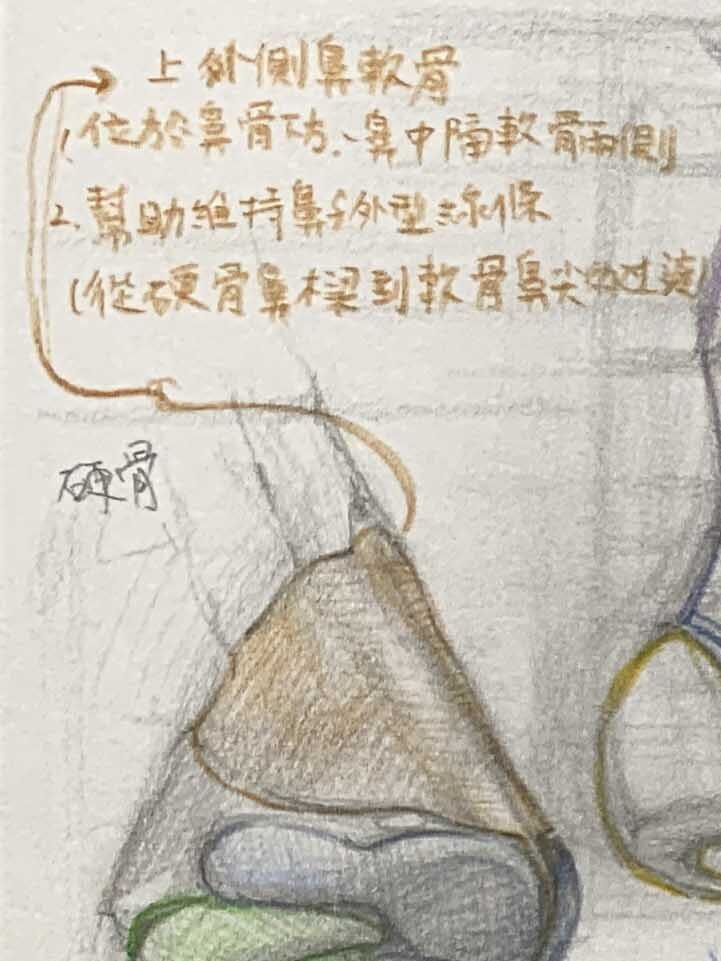 上外側鼻軟骨
1. 位於鼻骨下方、鼻中隔軟骨兩側
2. 幫助維持鼻子外型線條
(從硬骨鼻樑到軟骨鼻尖的过渡)
硬骨